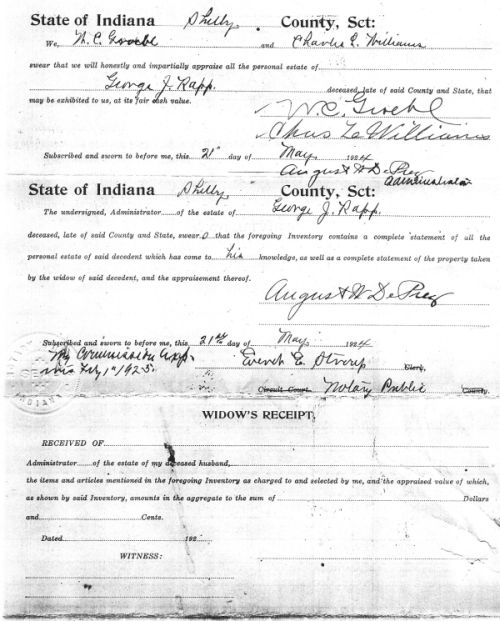 State of Indiana Shelby County, Sct:
We, W. C. Groebl and Charles E. Williams
swear that we will honestly and impartially appraise all the personal estate of
George J. Rapp. deceased, late of said County and State, that
may be exhibited to us, at its fair cash value.
W. C. Groebl
Chas E Williams
Subscribed and sworn to before me, this 21" day of May 1924
August W DePrez
Administrator
State of Indiana Shelby County, Sct:
The undersigned, Administrator of the estate of George J. Rapp.
deceased, late of said County and State, swear s that the foregoing Inventory contains a complete statement of all the
personal estate of said decedent which has come to his knowledge, as well as a complete statement of the property taken
by the widow of said decedent, and the appraisement thereof.
August W DePrez
Subscribed and sworn to before me, this 21st day of May 1924
My Commission exp- Everett E. Stroup Clerk,
ires Feby 1" 1925. Circuit Court. Notary Public County.
SEAL
INDIANA
WIDOW'S RECEIPT.
RECEIVED OF
Administrator of the estate of my deceased husband,
the items and articles mentioned in the foregoing Inventory as charged to and selected by me, and the appraised value of which,
as shown by said Inventory, amounts in the aggregate to the sum of Dollars
and Cents.
Dated 192
WITNESS: